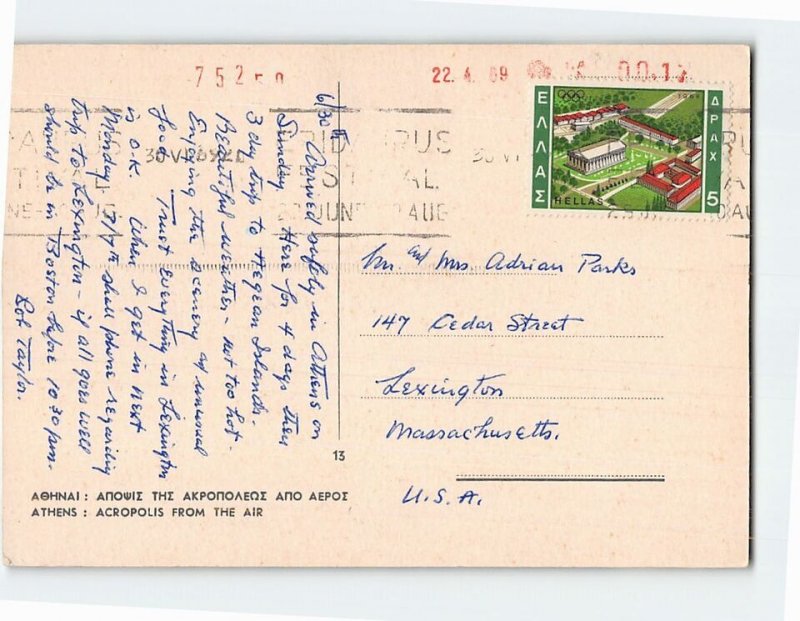 752
22. 4. 69
00.1
ΕΛΛΑΣ
ΔΡΑΧ
5
HELLAS
FESTIVAL
6/30th Arrived safely in Athens on
Sunday. Here for 4 days then
3 day trip to Aegean Islands.
Beautiful weather - not too hot -
Enjoying the scenery and unusual
food. Trust everything in Lexington
is O.K. When I get in next
Monday 7/7th shall phone regarding
trip to Lexington - if all goes well
should be in Boston before 10:30 pm.
Bob Taylor.
Mr. and Mrs Adrian Parks
147 Cedar Street
Lexington
Massachusetts.
U.S.A.
13
ΑΘΗΝΑΙ : ΑΠΟΨΙΣ ΤΗΣ ΑΚΡΟΠΟΛΕΩΣ ΑΠΟ ΑΕΡΟΣ
ATHENS : ACROPOLIS FROM THE AIR